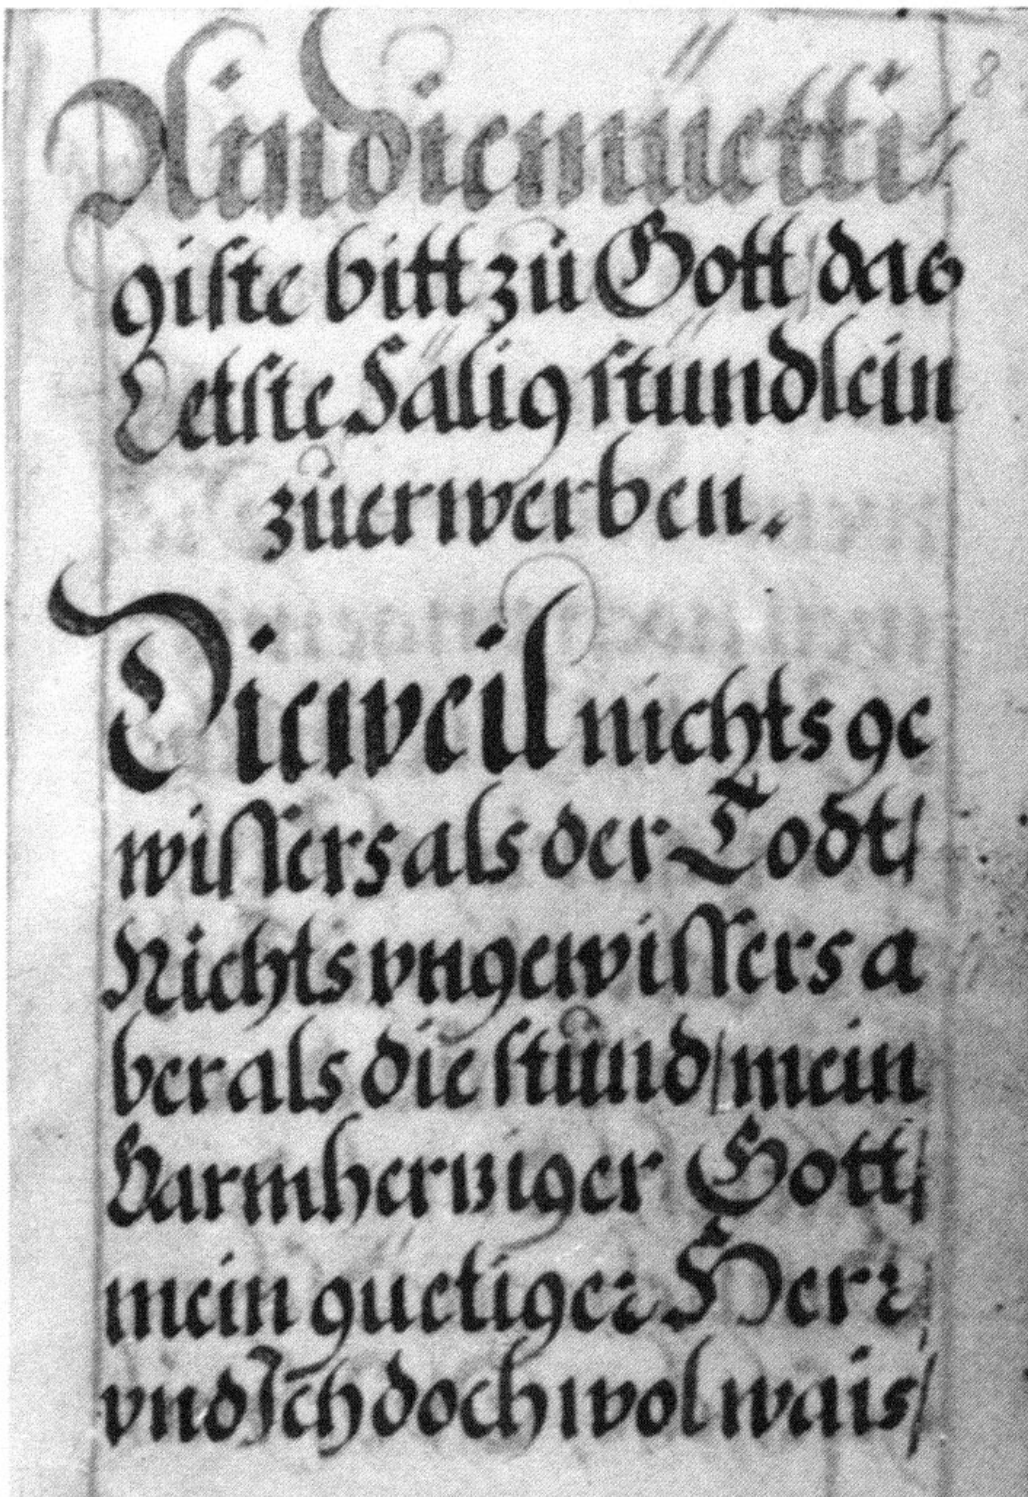 8
Ain diemüetti-
giste bitt zů Gott / das
Letste Sälig stündlein
zůerwerben.
Dieweil nichts ge
wissers als der Todt /
Nichts vngewissers a
ber als die stůnd / mein
Barmherziger Gott /
mein guetiger Herr
vnd Ich doch wol wais /